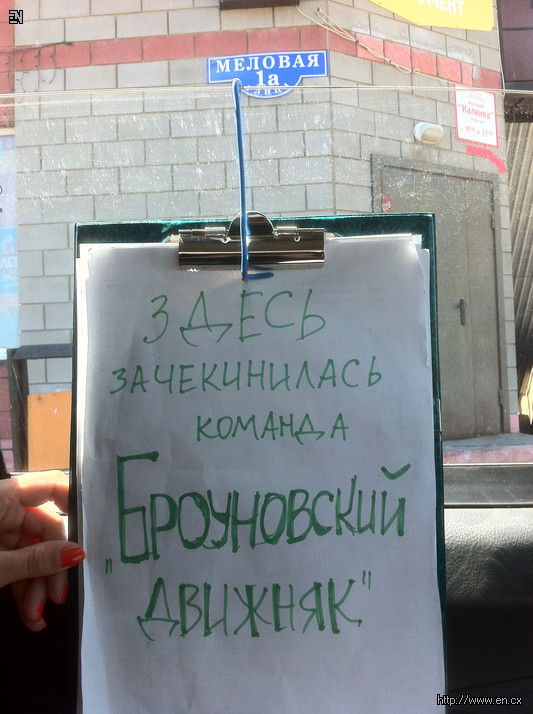 EN
УМЕНТ
МЕЛОВАЯ
1а
"Калинка"
ЗДЕСЬ
ЗАЧЕКИНИЛАСЬ
КОМАНДА
„БРОУНОВСКИЙ
ДВИЖНЯК"
http://www.en.cx